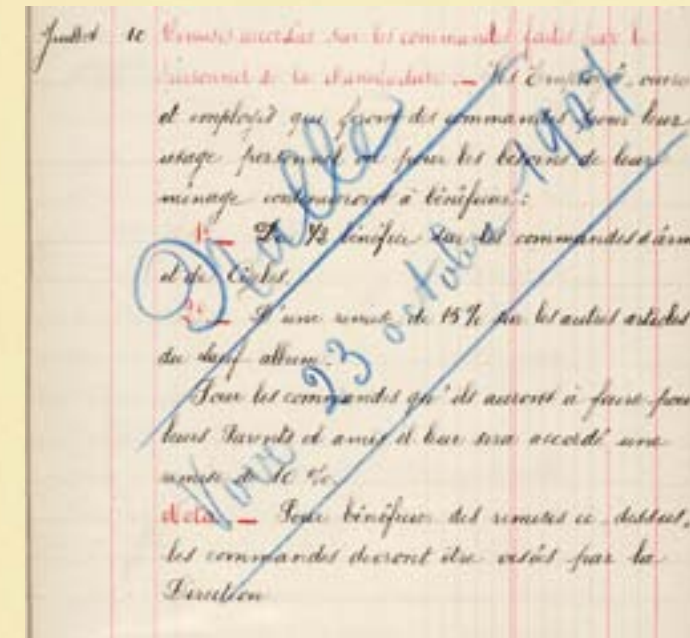 Juillet 10 Remises accordées sur les commandes faites par le
personnel de la Manufacture. — MM Employés, ouvriers
et employés qui feront des commandes pour leur
usage personnel ou pour les besoins de leur
ménage continueront à bénéficier :
1° — Du 1/2 bénéfice sur les commandes d'arm
et de Cycles.
2° — D'une remise de 15 % sur les autres articles
du album.
Pour les commandes qu'ils auront à faire pour
leurs Parents et amis il leur sera accordé une
remise de 10 %.
Nota — Pour bénéficier des remises ci dessus,
les commandes devront être visées par la
Direction
Nulle
Voir 23 octobre 1901